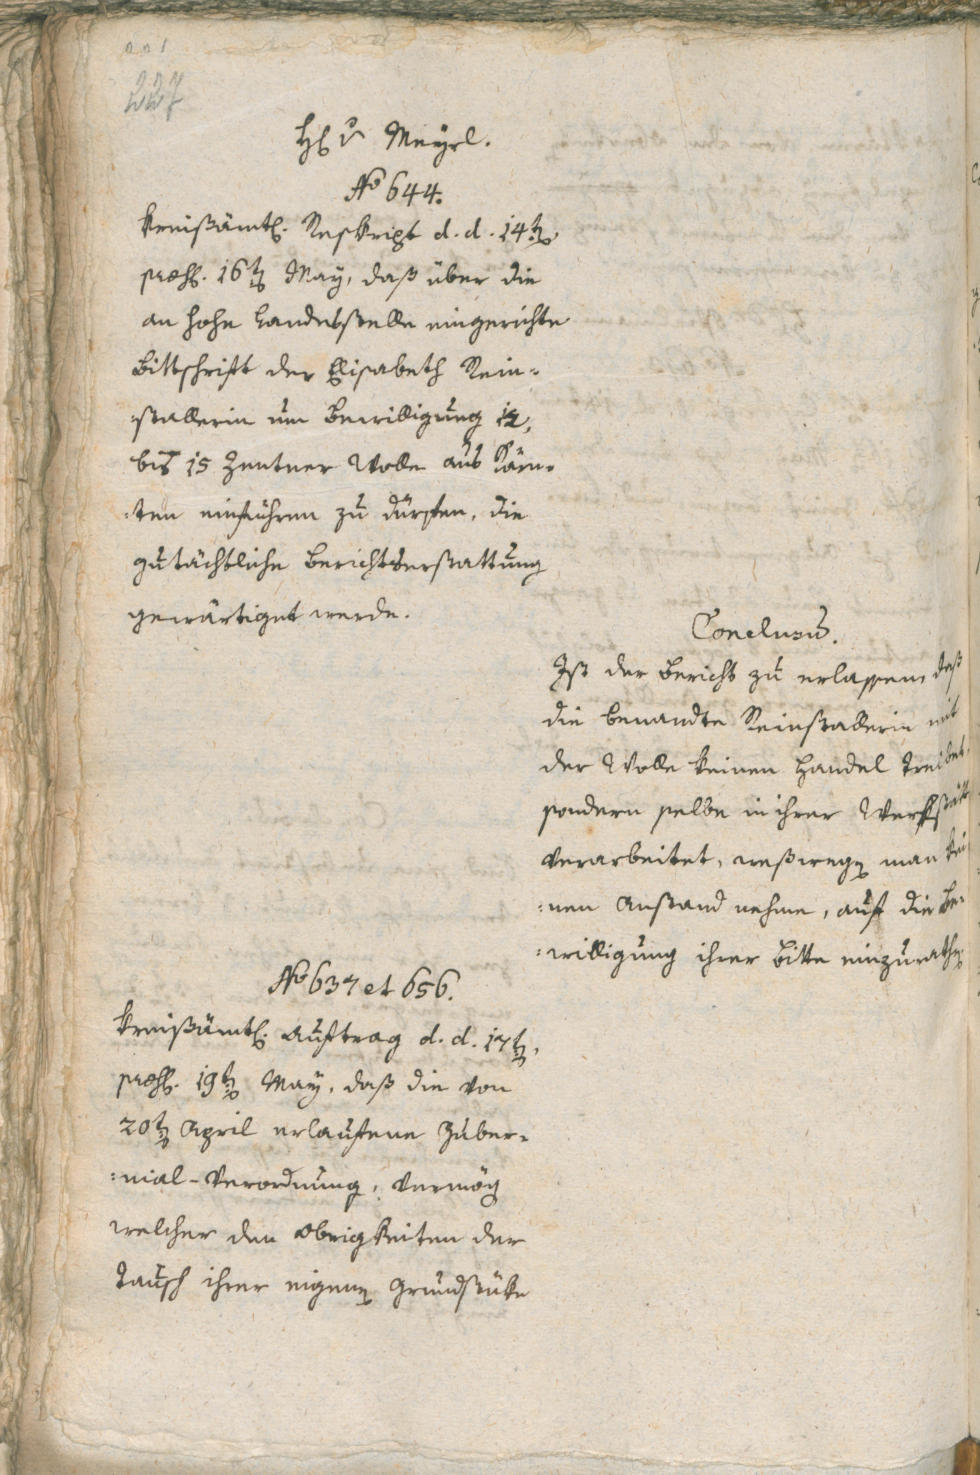 221
227
H. v Meyrl.
No 644.
Kreißämtl. Reskript d. d. 14ten
præs. 16ten May, daß über die
an hohe Landesstelle eingerichte
Bittschrift der Elisabeth Rein=
=stallerin um Bewilligung 12,
bis 15 Zentner Wolle aus Kärn=
=ten einführen zu dürfen, die
gutächtliche Berichtserstattung
gewärtiget werde.
Conclusũ.
Ist der Bericht zu erlassen, daß
die benandte Reinstallerin mit
der Wolle keinen Handel treibet,
sondern selbe in ihrer Werkstätt
verarbeitet, weßwegen man kei
=nen Anstand nehme, auf die Be=
=willigung ihrer Bitte einzurathen.
No 637 et 656.
Kreißämtl. Auftrag d. d. 17ten,
præs. 19ten May, daß die von
20ten April erlaufene Guber=
=nial-Verordnung, vermög
welcher den Obrigkeiten der
Tausch ihrer eigenen Grundstüke